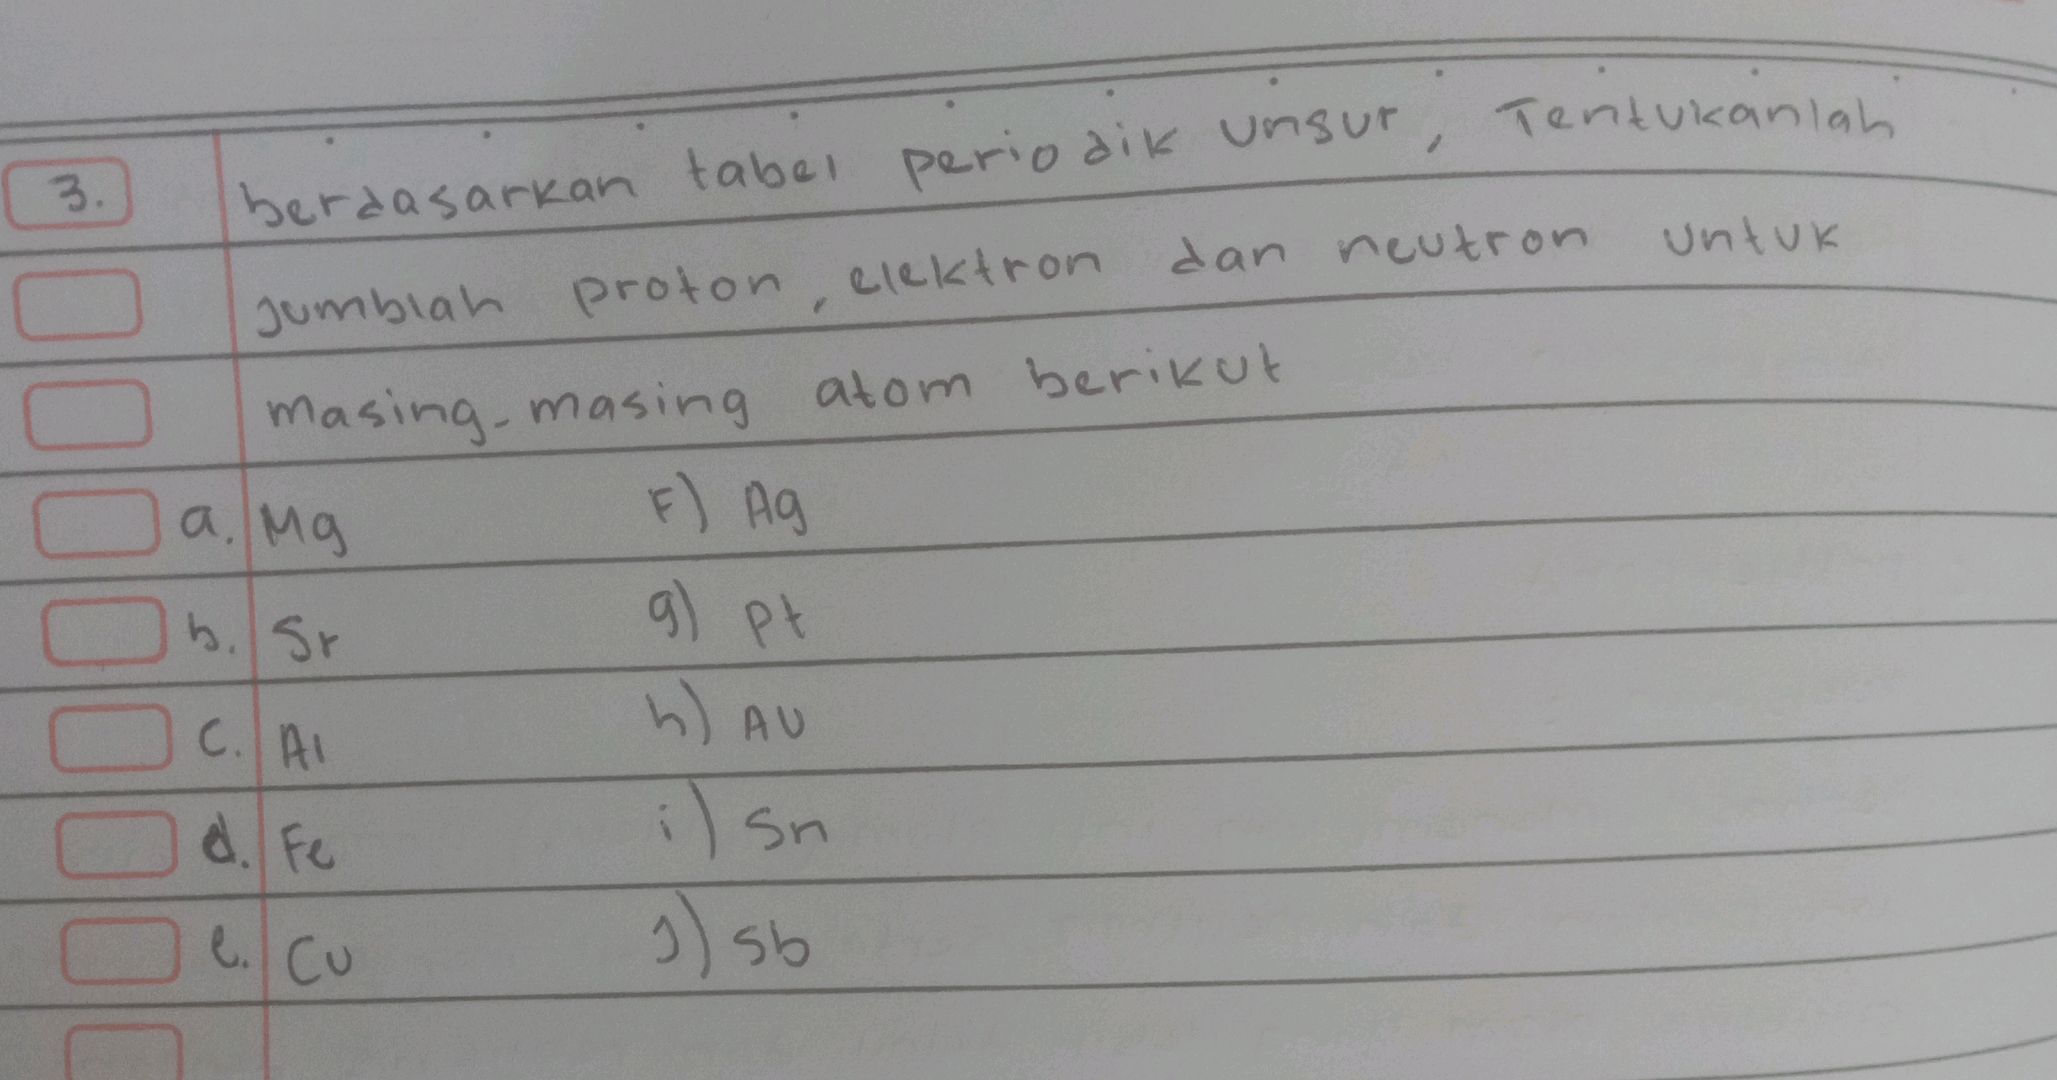 3. berdasarkan tabel periodik unsur, Tentukanlah
Jumblah proton, elektron dan neutron untuk
masing-masing atom berikut
a. Mg F) Ag
b. Sr g) pt
c. Al h) AU
d. Fe i) Sn
e. Cu J) Sb